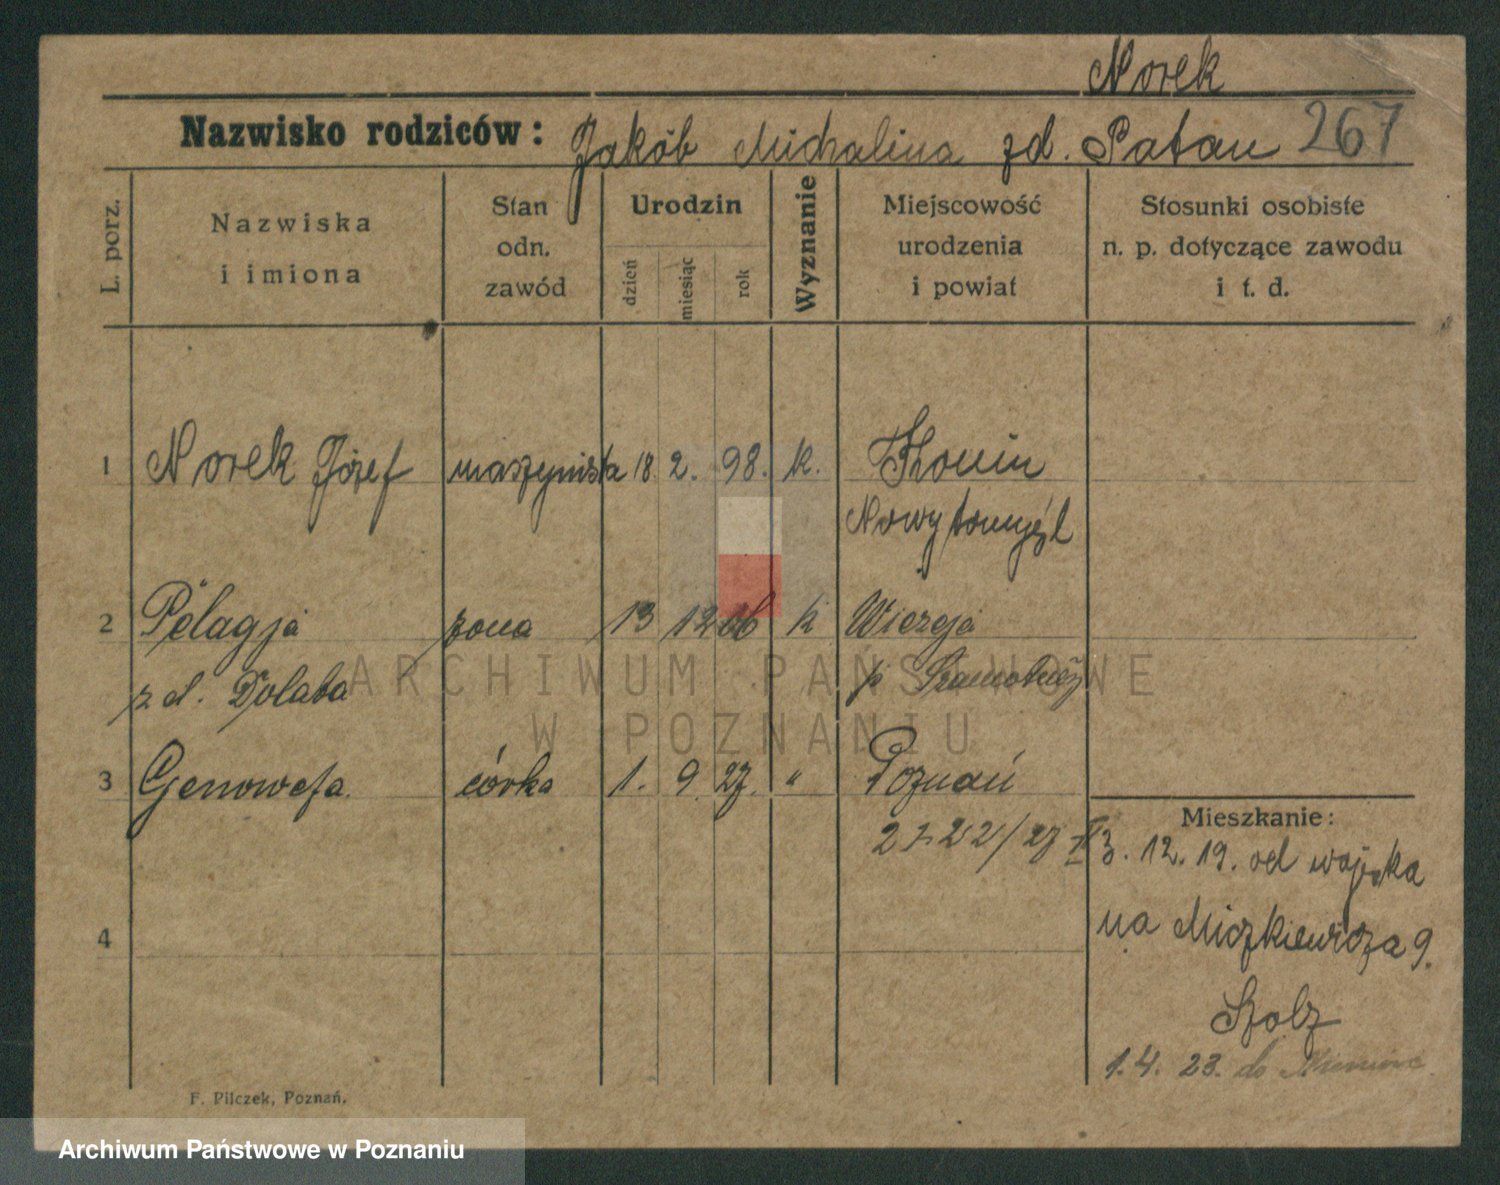 Norek
Nazwisko rodziców: Jakób Michalina zd. Patan 267
L. porz.
Nazwiska i imiona
Stan odn. zawód
Urodzin
dzień miesiąc rok
Wyznanie
Miejscowość urodzenia i powiat
Stosunki osobiste n. p. dotyczące zawodu i t. d.
1 Norek Józef maszynista 18 2. 98. k.
Nowytomyśl
2 Pelagja żona 13 12 06 k
z d. Dolaba p Szamotuły
ARCHIWUM PAŃSTWOWE
W POZNANIU
3 Genowefa. córka 1. 9 27. " Poznań
Mieszkanie:
3. 12. 19. od wojska
4
na Mickiewicza 9.
Szolz
1. 4. 23. do
F. Pilczek, Poznań.
Archiwum Państwowe w Poznaniu